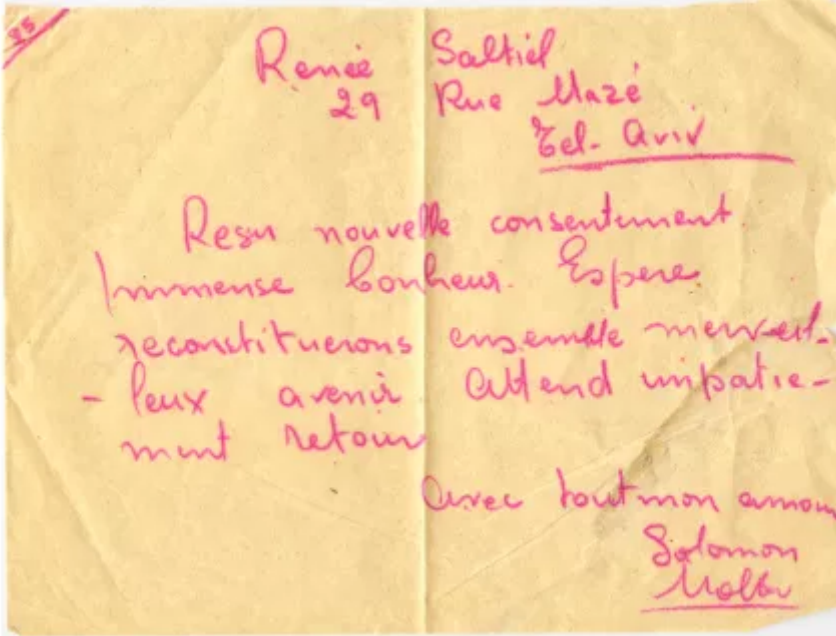 85
Renée Saltiel
29 Rue Mazé
Tel-Aviv
Resu nouvelle consentement
Immense bonheur. Espere
reconstituerons ensemble merveil-
-leux avenir Attend impatie-
ment retour
avec tout mon amour
Salomon